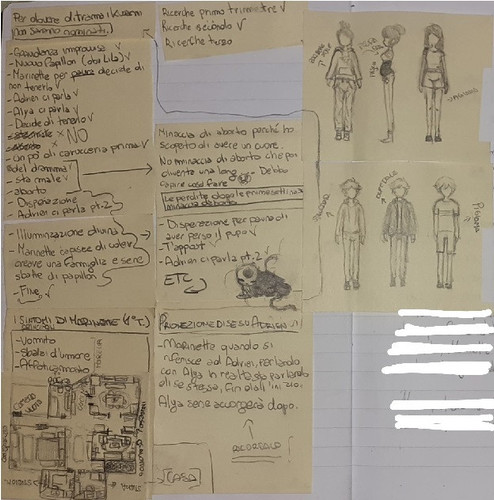 Per dovere di trama i Kwami
non saranno nominati.
Ricerche primo trimestre √
Ricerche secondo √
Ricerche terzo
- Gravidanza improvvisa √
- Nuovo Papillon (ora Lila) √
- Marinette per paura decide di
non tenerlo √
- Adrien ci parla √
- Alya ci parla √
- Decide di tenerlo √
× NO
- Un po' di carucceria prima √
del dramma
- Sta male √
- aborto
- Disperazione
Adrien ci parla pt.2
- Illuminazione divina √
- Marinette capisce di voler
creare una famiglia e se ne
sbatte di papillon
- Fine √
Minaccia di aborto perché ho
scoperto di avere un cuore.
No minaccia di aborto che poi
diventa una long
Debbo
capire cosa fare
Le perdite dopo le prime settimane
minaccia aborto
- Disperazione per paura di
aver perso il pupo √
- T'appost √
- Adrien ci parla pt.2 √
ETC
I SINTOMI DI MARINETTE (1° T.)
- Vomito
- Sbalzi d'umore
- Affaticamento
PROIEZIONE DI SE SU ADRIEN
- Marinette quando si
riferisce ad Adrien, parlando
con Alya in realtà sta parlando
di se stessa, fin dall'inizio.
Alya se ne accorgerà dopo.
RICORDALO
CASA
PIGIAMA